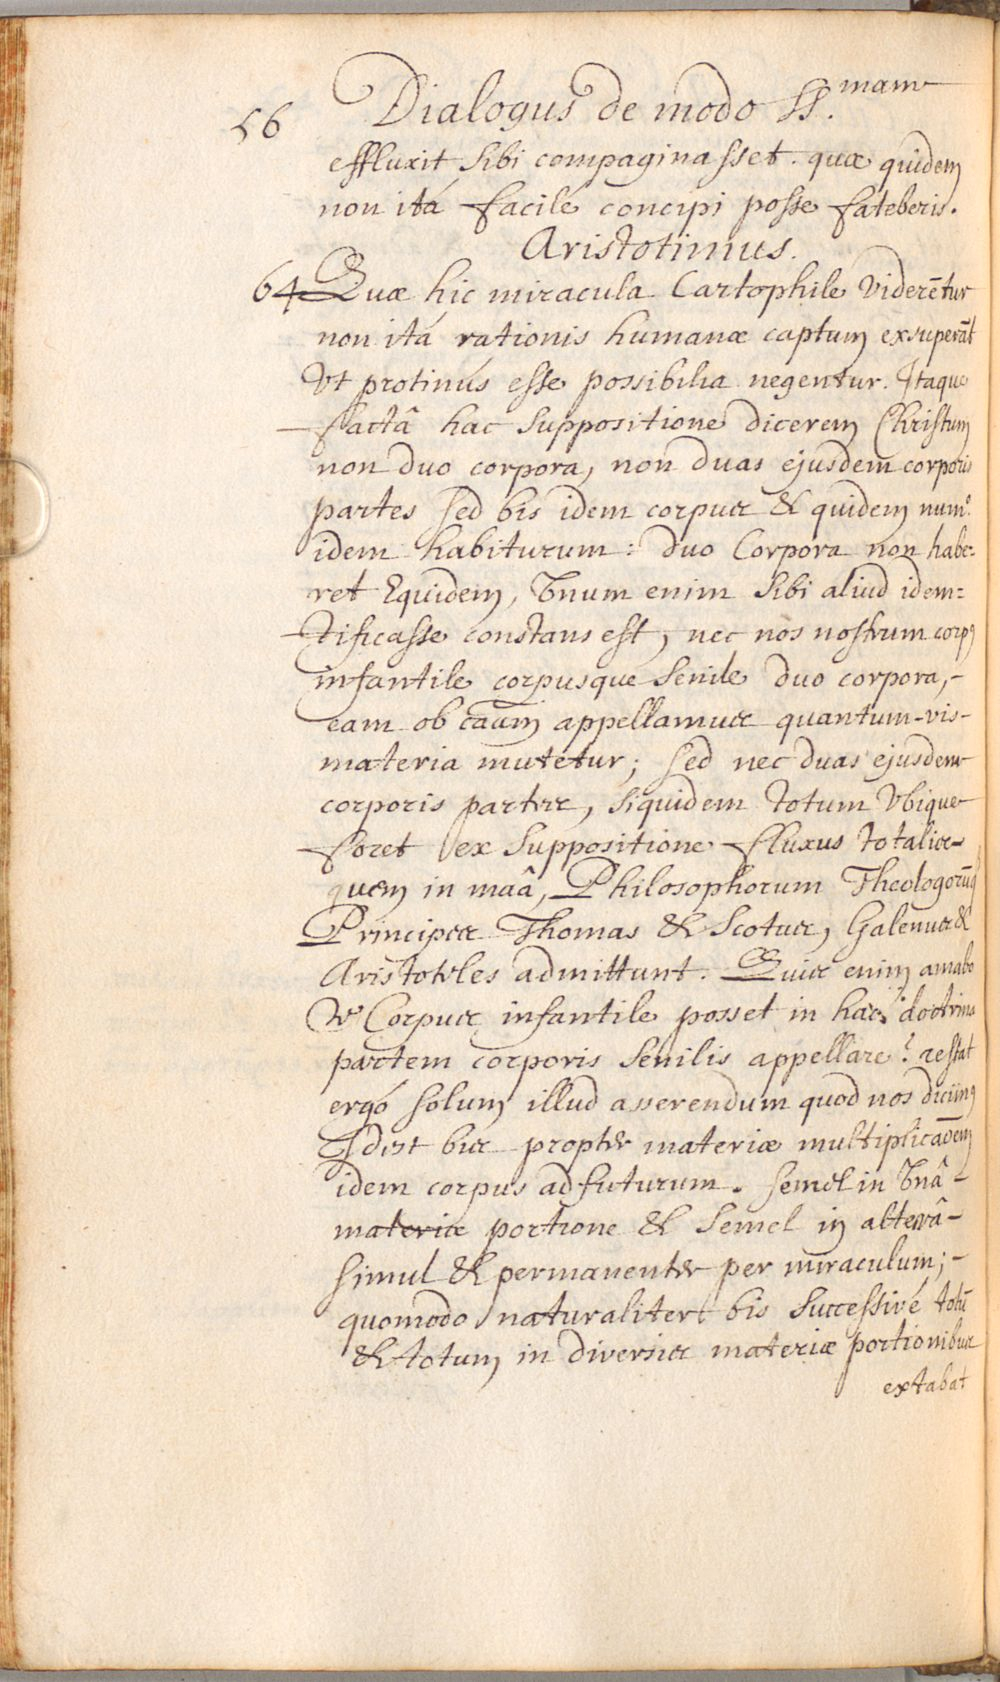 56 Dialogus de modo SS.mam
effluxit sibi compaginasset. quæ quidem
non itá facilé concipi posse fateberis.
Aristotimus.
64 Quæ hic miracula Cartophile viderētur
non itá rationis humanæ captum exsuperāt
vt protinús esse possibilia negentur. Itaque
factâ hac suppositione dicerem Christum
non duo corpora, non duas ejusdem corporis
partes sed bis idem corpus & quidem num.º
idem habiturum: duo Corpora non habe=
ret Equidem, Vnum enim sibi aliud idem=
tificasse constans est, nec nos nostrum corpꝰ
infantile corpusque senile duo corpora,-
eam ob cāum appellamus quantum-vis-
materia mutetur; sed nec duas ejusdem
corporis partes, siquidem totum Vbique
foret ex suppositione fluxus totalis-
quem in maâ, Philosophorum Theologorūq
Principes Thomas & Scotus, Galenus &
Aristoteles admittunt. Quis enim amabo
te Corpus infantile posset in hac doctrina
partem corporis senilis appellare? restat
ergó solum illud asserendum quod nos dicimꝰ
Id est bis propter materiæ multiplicāōem
idem corpus adfuturum. semel in Vnâ-
materiæ portione & semel in alterâ-
simul & permanenter per miraculum;-
quomodo naturaliter bis successivé totū
& totum in diversis materiæ portionibus
extabat